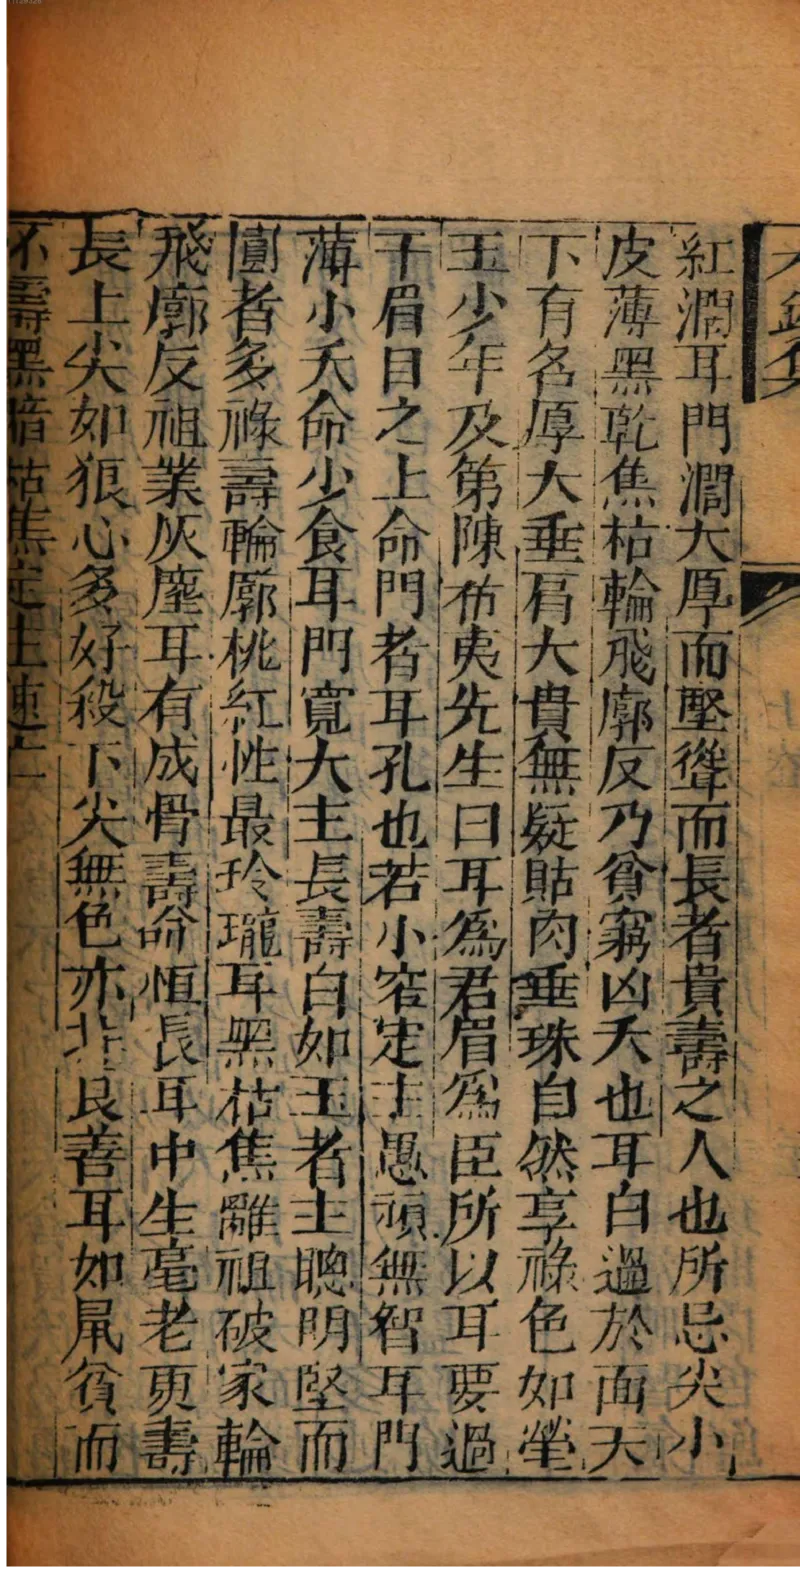 紅潤耳門濶大厚而堅聳而長者貴壽之人也所忌尖小
皮薄黑乾焦枯輪飛廓反乃貧窮凶夭也耳白過於面天
下有名厚大垂肩大貴無疑貼肉垂珠自然享祿色如瑩
玉少年及第陳希夷先生曰耳爲君眉爲臣所以耳要過
于眉目之上命門者耳孔也若小窄定主愚頑無智耳門
薄小夭命少食耳門寬大主長壽白如玉者主聰明堅而
圓者多祿壽輪廓桃紅性最玲瓏耳黑枯焦離祖破家輪
飛廓反祖業灰塵耳有成骨壽命恒長耳中生毫老更壽
長上尖如狼心多好殺下尖無色亦非良善耳如鼠貧而
不壽黑暗枯焦定主速亡